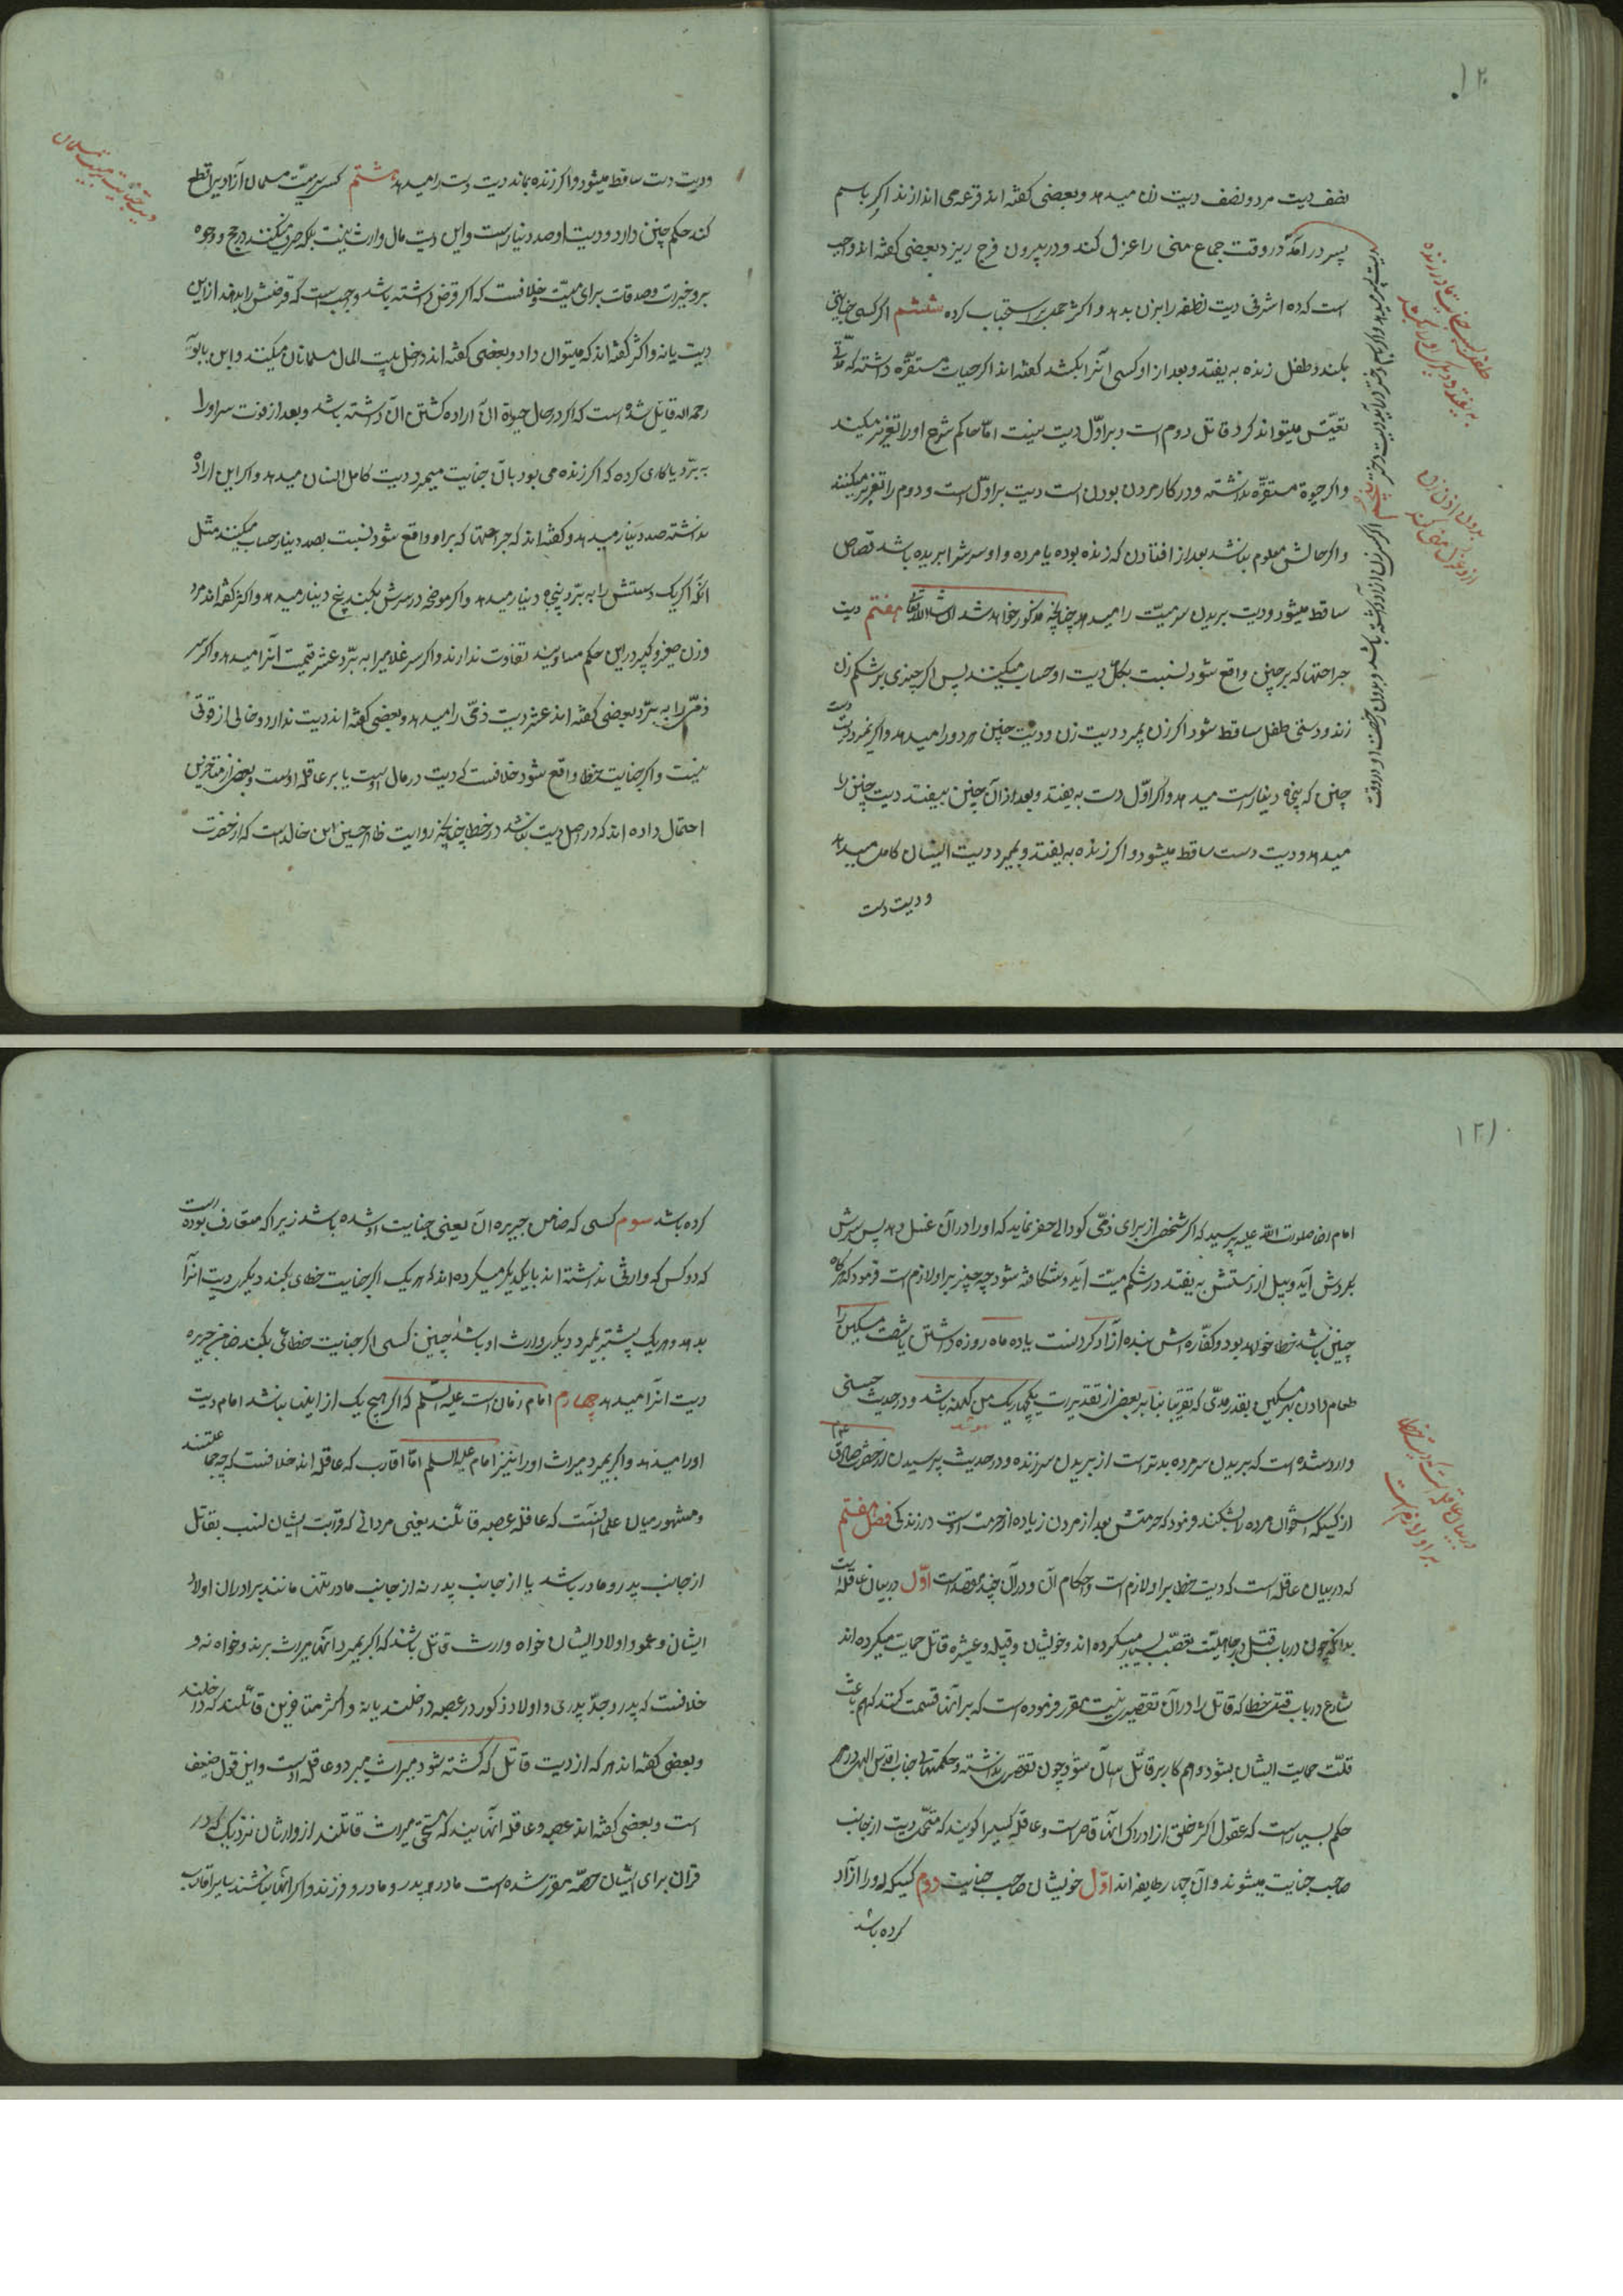 ۱۲۰
نصف دیت مرد و نصف دیت زن میدهد و بعضی گفته اند قرعه می اندازند اگر باسم
پسر درآمد در وقت جماع منی را عزل کند و در بیرون فرج ریزد بعضی گفته اند واجب
است که ده اشرفی دیت نطفه را بزن بدهد و اکثر حمل بر استحباب کرده ششم اگر کسی جنایتی
بکند و طفل زنده به یفتد و بعد از او کسی آنرا بکشد گفته اند اگر حیات مستقره داشته که
میتواند کرد قاتل دوم است و بر اول دیت نیست اما حاکم شرع او را تعزیر میکند
و اگر حیوة مستقره نداشته و در کار مردن بودن است دیت بر اول است و دوم را تعزیر میکنند
و اگر حالش معلوم نباشد بعد از افتادن که زنده بوده یا مرده و او سرش را بریده باشد قصاص
ساقط میشود و دیت بریدن سر میت را میدهد چنانچه مذکور خواهد شد ان شاء الله تعالی هفتم دیت
جراحتها که بر جنین واقع شود نسبت بکل دیت او حساب میکنند پس اگر چیزی بر شکم زن
زند و دستی طفل ساقط شود اگر زن بمیرد دیت زن و دیت جنین هر دو را میدهد و اگر نمیرد دیت دست
جنین که پنجاه دینار است میدهد و اگر اول دست به یفتد و بعد از آن جنین بیفتد دیت جنین را
میدهد و دیت دست ساقط میشود و اگر زنده به یفتد و بمیرد دیت انسان کامل میدهد
و دیت دست
بدون اذن زن
و دیت دست ساقط میشود و اگر زنده بماند دیت دست را میدهد هشتم کسی سر میت مسلمان آزادیرا قطع
کند حکم جنین دارد و دیت او صد دینار است و این دیت مال وارث نیست بلکه صرف میکنند در حج و وجوه
بر و خیرات و صدقات برای میت و خلافست که اگر قرض داشته باشد واجب است که قرضش را بدهند ازاین
دیت یا نه و اکثر گفته اند که میتوان داد و بعضی گفته اند داخل بیت المال مسلمانان میکنند و ابن بابویه
رحمه الله قایل شده است که اگر در حال حیوة آن اراده کشتن آن داشته باشد و بعد از فوت سر او را
به برد یا کاری کرده که اگر زنده می بود بآن جنایت میمرد دیت کامل انسان میدهد و اگر این اراده
نداشته صد دینار میدهد و گفته اند که جراحتها که بر او واقع شود نسبت بصد دینار حساب میکنند مثل
آنکه اگر یک دستش را به برد پنجاه دینار میدهد و اگر موضحه در سرش بکند پنج دینار میدهد و اکثر گفته اند مرد
و زن صغیر و کبیر در این حکم مساویند تفاوت ندارند و اگر سر غلامیرا به برد عشر قیمت آنرا میدهد و اگر سر
ذمی را به برد بعضی گفته اند عشر دیت ذمی را میدهد و بعضی گفته اند دیت ندارد و خالی از قوتی
نیست و اگر جنایت خطا واقع شود خلافست که دیت در مال اوست یا بر عاقله اوست و بعضی از متاخرین
احتمال داده اند که در اصل دیت نباشد در خطا چنانچه روایت ظاهر حسین ابن خالد است که از حضرت
۱۲۱
امام رضا صلوات الله علیه پرسید که اگر شخصی از برای ذمی کودالی حفر نماید که او را در آن غسل دهد پس سرش
بگردش آید و بیل از دستش به یفتد در شکم میت آید و شکافته شود چه چیز بر او لازم است فرمود که هرگاه
چنین باشد خطا خواهد بود و کفاره اش بنده آزاد کردنست یا دو ماه روزه داشتن یا شصت مسکین را
طعام دادن بهر مسکین بقدر مدی که تقریبا بنا بر بعضی از تقدیرات یکچهاریک من کهنه باشد و در حدیث حسنی
وارد شده است که بریدن سر مرده بدتر است از بریدن سر زنده و در حدیث پرسیدن از حضرت صادق
از کسیکه استخوان مرده را بشکند فرمود که حرمتش بعد از مردن زیاده از حرمت اوست در زندگی فصل هفتم
که در بیان عاقله است که دیت خطا بر او لازم است و احکام آن و در آن چند مقصد است اول در بیان عاقله است
بدانکه چون در باب قتل در جاهلیت تعصب بسیار میکرده اند و خویشان و قبیله و عشیره قاتل حمایت میکرده اند
شارع در باب قتل خطا که قاتل را در آن تقصیری نیست مقرر فرموده است که بر آنها قسمت کنند که هم باعث
قلت حمایت ایشان بشود و هم کار بر قاتل آسان شود چون تقصیری نداشته و حکمتهای جناب اقدس الهی در هر
حکم بسیار است که عقول اکثر خلق از ادراک آنها قاصر است و عاقله کسیرا گویند که متحمل دیت از جانب
صاحب جنایت میشوند و آن چهار طایفه اند اول خویشان صاحب جنایت دوم کسیکه او را آزاد
کرده باشد
کرده باشد سوم کسی که ضامن جریره آن یعنی جنایت او شده باشد زیرا که متعارف بوده است
که دو کس که وارثی نداشته اند با یکدیگر میکرده اند که هر یک اگر جنایت خطای بکند دیگری دیت آنرا
بدهد و هر یک پیشتر بمیرد دیگری وارث او باشد چنین کسی اگر جنایت خطائی بکند ضامن جریره
دیت آنرا میدهد چهارم امام زمان است علیه السلم که اگر هیچ یک از اینها نباشد امام دیت
او را میدهد و اگر بمیرد میراث او را نیز امام علیه السلم اما اقارب که عاقله اند خلافست که چه جماعتند
و مشهور میان علما آنست که عاقله عصبه قاتلند یعنی مردانی که قرابت ایشان بنسب بقاتل
از جانب پدر و مادر باشد یا از جانب پدر نه از جانب مادر تنها مانند برادران اولاد
ایشان و عمو و اولاد ایشان خواه وارث قاتل باشند که اگر بمیرد آنها میراث برند و خواه نه و
خلافست که پدر و جد پدری و اولاد ذکور در عصبه داخلند یا نه و اکثر متاخرین قائلند که داخلند
و بعضی گفته اند هر که از دیت قاتل که کشته شود میراث میبرد و عاقله اوست و این قول ضعیف
است و بعضی گفته اند عصبه و عاقله آنهایند که مستحق میراث قاتلند از وارثان نزدیک که در
قرآن برای ایشان حصه مقرر شده است مادر و پدر و مادر و فرزند و اگر آنها نباشند سایر اقارب